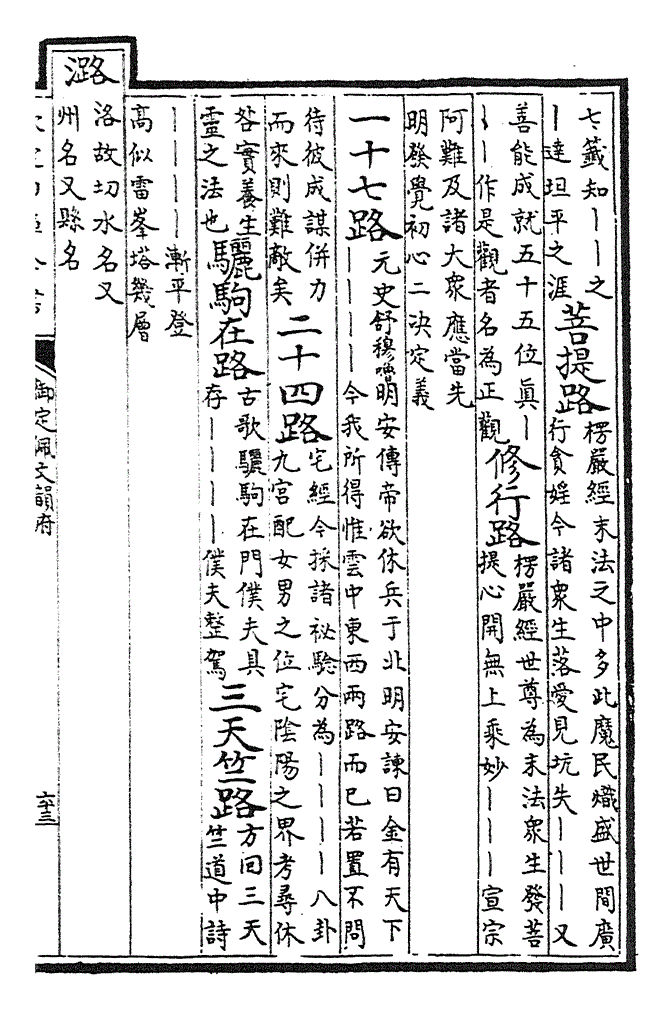 七籤知｜｜之
｜達坦平之涯
菩提路
楞嚴經末法之中多此魔民熾盛世間廣
行貪婬令諸衆生落愛見坑失｜｜｜又
善能成就五十五位眞｜
｜｜作是觀者名為正觀
修行路
楞嚴經世尊為末法衆生發菩
提心開無上乘妙｜｜｜宣宗
阿難及諸大衆應當先
明發覺初心二決定義
一十七路
元史舒穆嚕明安傳帝欲休兵于北明安諫曰金有天下
｜｜｜｜今我所得惟雲中東西兩路而已若置不問
待彼成謀併力
而來則難敵矣
二十四路
宅經今採諸祕驗分為｜｜｜｜八卦
九宮配女男之位宅陰陽之界考尋休
咎實養生
靈之法也
驪駒在路
古歌驪駒在門僕夫具
存｜｜｜｜僕夫整駕
三天竺路
方回三天
竺道中詩
｜｜｜｜漸平登
高似雷峯塔幾層
潞
洛故切水名又
州名又縣名
御定佩文韻府
六十三